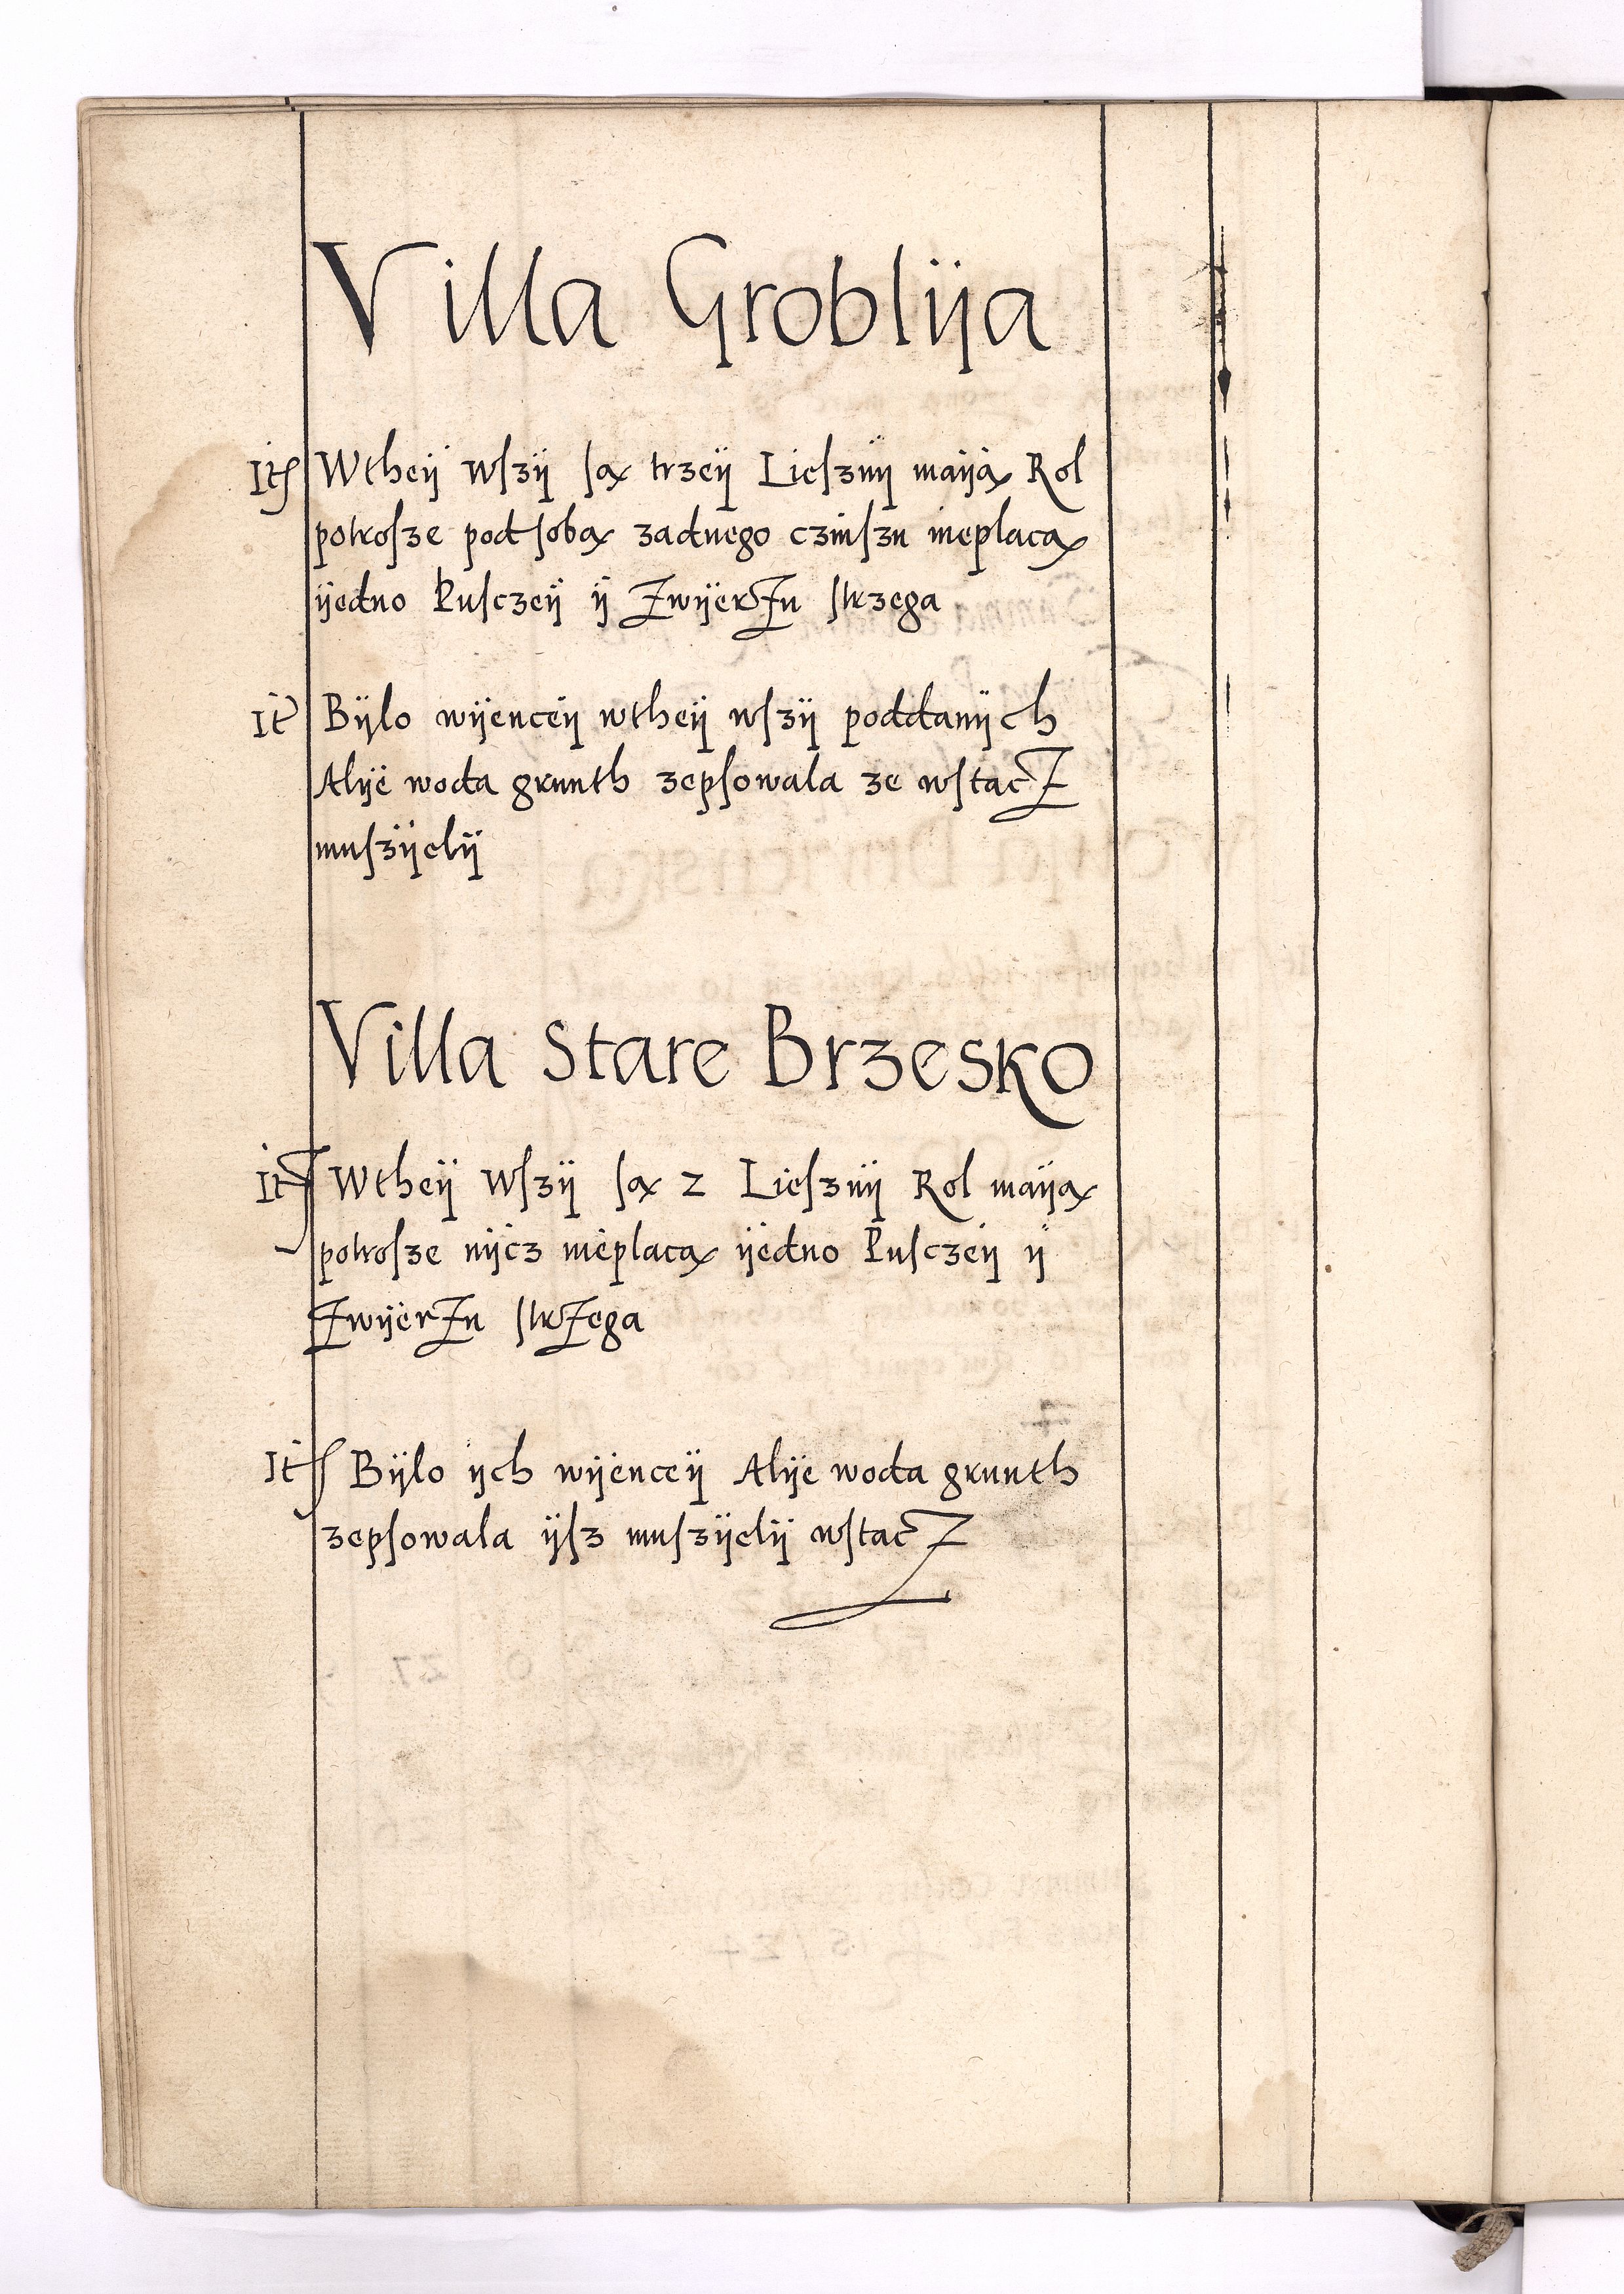 Villa Groblÿa
It Wtheÿ Wſzÿ ſą trzeÿ Lieſznÿ maÿą Rol
potroſze pod ſobą zadnego czinſzu nieplacą
ÿedno Puſczeÿ ÿ Zwÿerzu ſtrzega
It Bÿlo wÿenceÿ wtheÿ wſzÿ poddanÿch
Alÿe woda grunth zepſowala ze wſtacz
muſzÿelÿ
Villa Stare Brzesko
It Wtheÿ Wſzÿ ſą 2 Lieſznÿ Rol maÿą
potroſze nÿcz nieplacą ÿedno Puſczeÿ ÿ
Zwÿerzu ſtrzega
It Bÿlo ÿch wÿenceÿ Alÿe woda grunth
zepſowala ÿſz muſzÿelÿ wſtacz